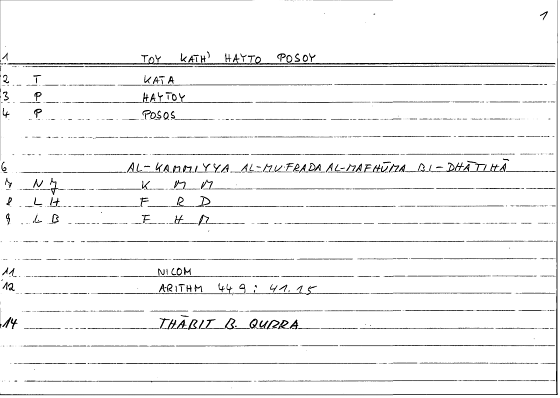 1
1 TOY KATH' HAYTO POSOY
2 T KATA
3 P HAYTOY
4 P POSOS
6 AL-KAMMIYYA AL-MUFRADA AL-MAFHŪMA BI-DHĀTIHĀ
7 NJ K M M
8 LH F R D
9 LB F H M
11 NICOM
12 ARITHM 44.9 : 41.15
14 THĀBIT B. QURRA